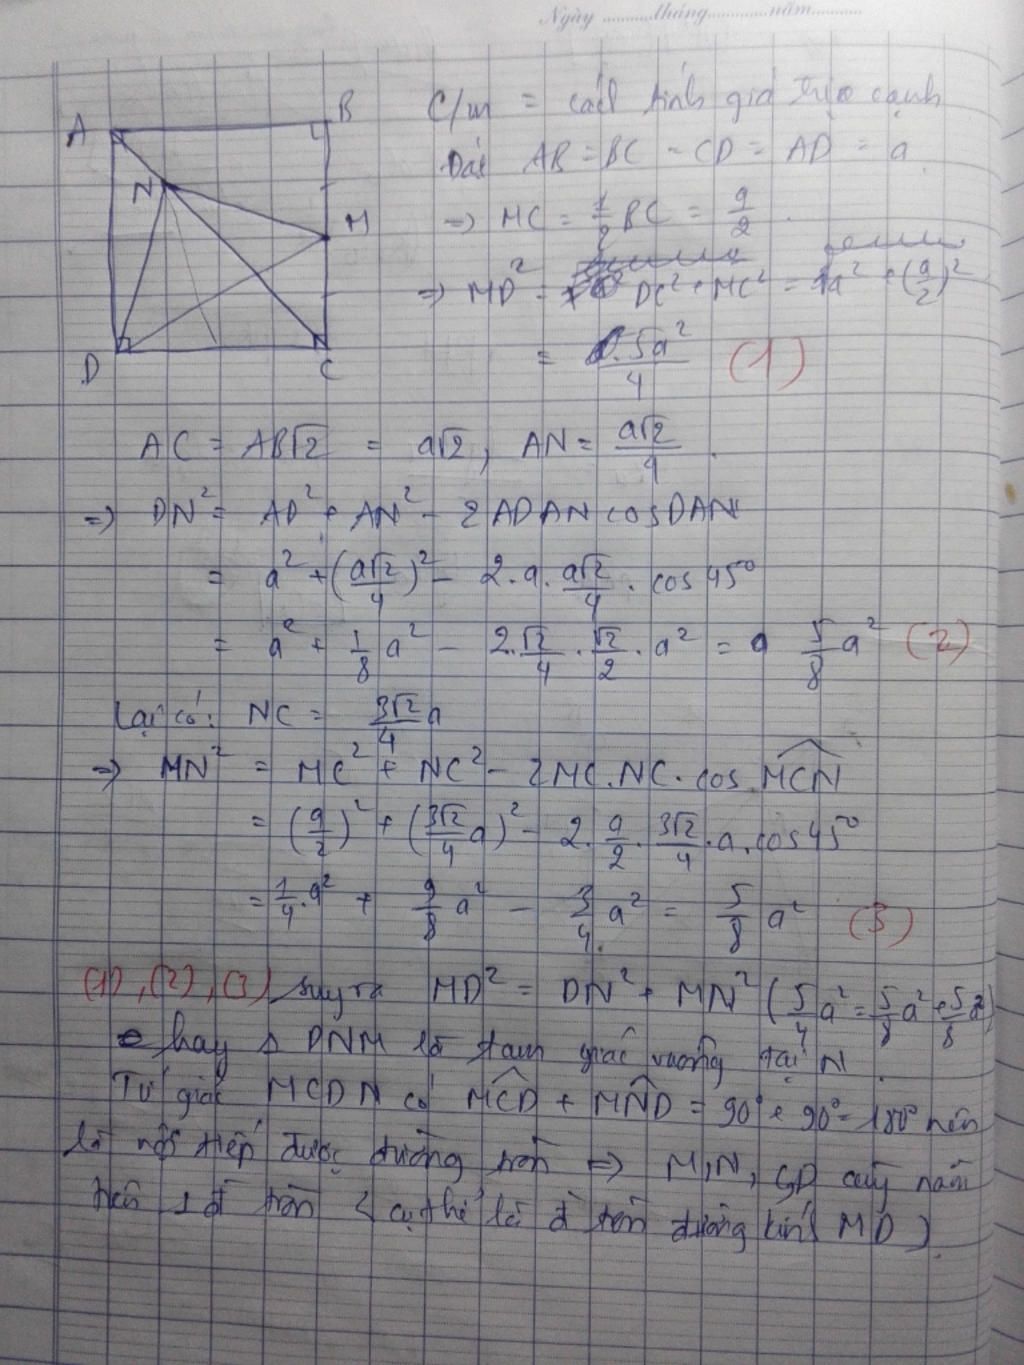 Ngày ............tháng.............năm...........
A
B
N
M
D
C
C/m = cách tính giá trị các cạnh
Đặt AB = BC = CD = AD = a
=> MC = 1/2 BC = a/2
=> MD² = DC² + MC² = a² + (a/2)²
= 5a²/4 (1)
AC = AB√2 = a√2, AN = a√2/4.
=> DN² = AD² + AN² - 2ADAN cosDAN
= a² + (a√2/4)² - 2.a.a√2/4 . cos45°
= a² + 1/8 a² - 2.√2/4 . √2/2 . a² = 5/8 a² (2)
Lại có: NC = 3√2/4 a
=> MN² = MC² + NC² - 2MC.NC.cos MCN
= (a/2)² + (3√2/4 a)² - 2.a/2.3√2/4.a.cos45°
= 1/4.a² + 9/8 a² - 3/4 a² = 5/8 a² (3)
(1), (2), (3) suy ra MD² = DN² + MN² (5/4 a² = 5/8 a² + 5/8 a²)
hay Δ DNM là tam giác vuông tại N.
Tứ giác MCDN có MCD + MND = 90° + 90° = 180° nên
là nội tiếp được đường tròn => M,N,C,D cùng nằm
trên 1 đ tròn (cụ thể là đ tròn đường kính MD)